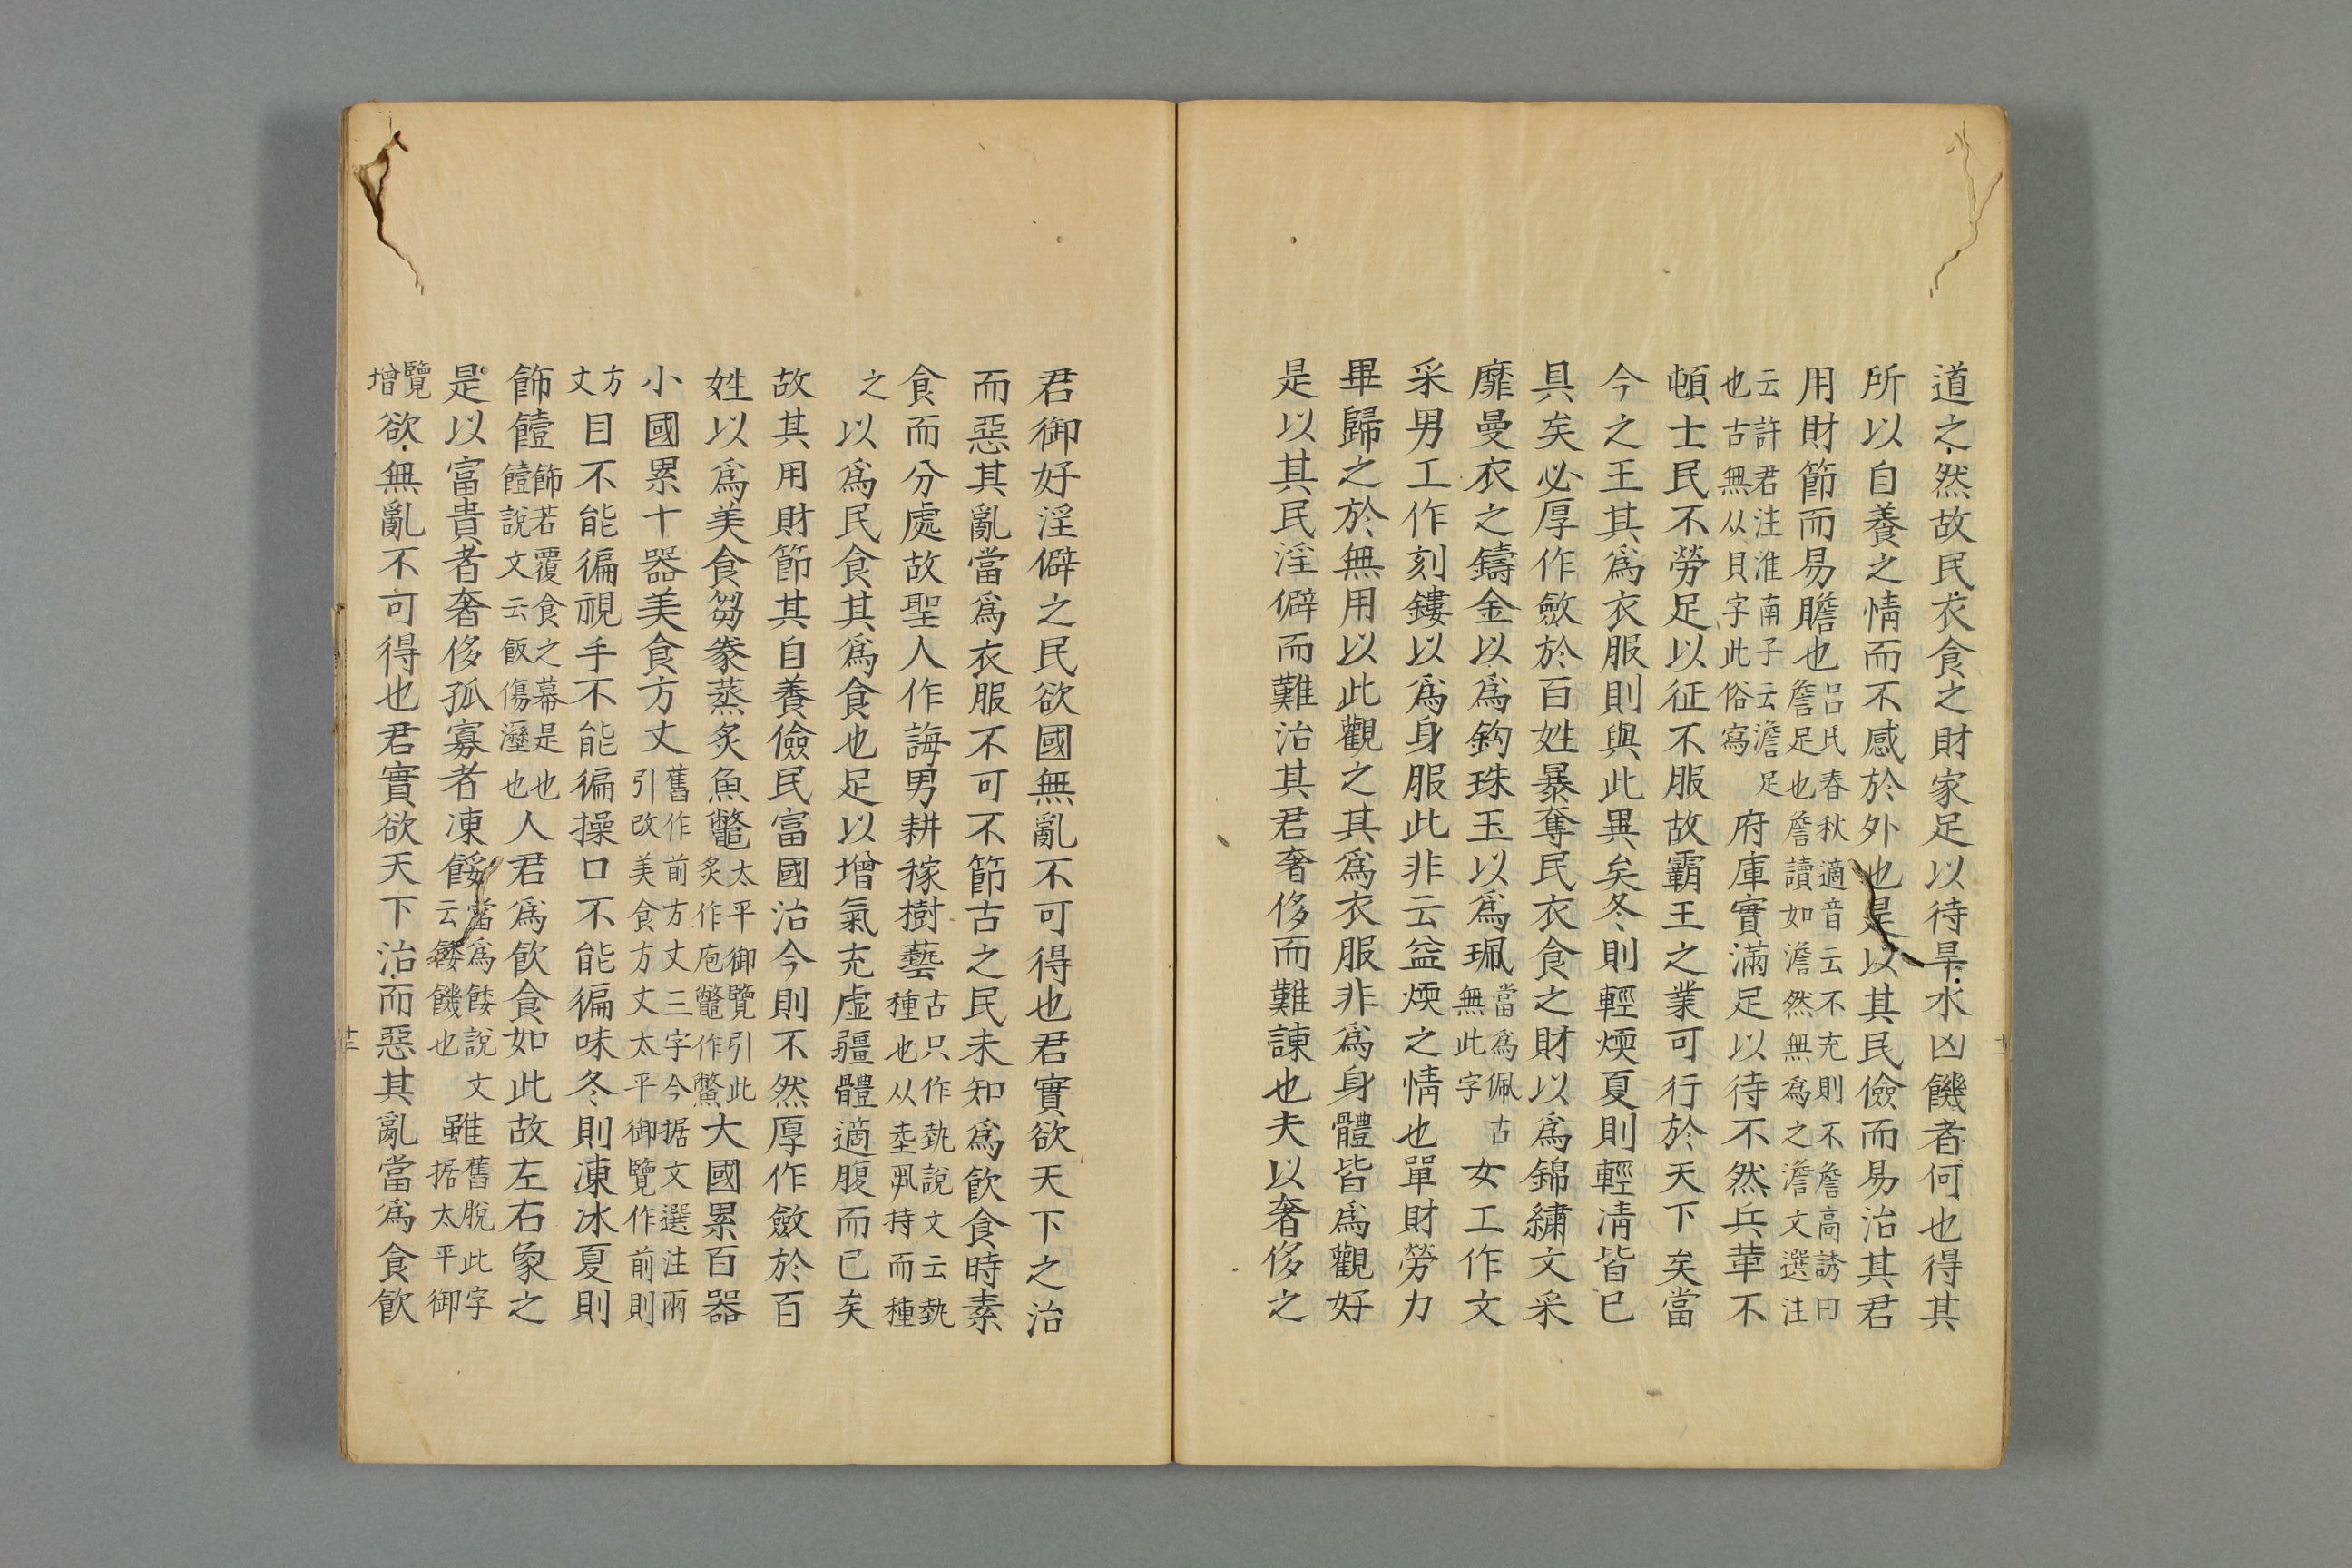 道之然故民衣食之財家足以待旱水凶饑者何也得其
所以自養之情而不感於外也是以其民儉而易治其君
用財節而易贍也呂氏春秋適音云不充則不詹高誘曰詹足也詹讀如澹然無為之澹文選注
云許君注淮南子云澹足也古無从貝字此俗寫府庫實滿足以待不然兵革不
頓士民不勞足以征不服故霸王之業可行於天下矣當
今之王其爲衣服則與此異矣冬則輕煗夏則輕凊皆已
具矣必厚作斂於百姓暴奪民衣食之財以爲錦繡文采
靡曼衣之鑄金以爲鉤珠玉以爲珮當爲佩古無此字女工作文
采男工作刻鏤以爲身服此非云益煗之情也單財勞力
畢歸之於無用以此觀之其爲衣服非爲身體皆爲觀好
是以其民淫僻而難治其君奢侈而難諫也夫以奢侈之
君御好淫僻之民欲國無亂不可得也君實欲天下之治
而惡其亂當爲衣服不可不節古之民未知爲飲食時素
食而分處故聖人作誨男耕稼樹藝古只作埶說文云埶種也从坴丮持而種
之以爲民食其爲食也足以增氣充虛疆體適腹而已矣
故其用財節其自養儉民富國治今則不然厚作斂於百
姓以爲美食芻豢蒸炙魚鼈太平御覽引此炙作庖鼈作鱉大國累百器
小國累十器美食方丈舊作前方丈三字今据文選注兩引改美食方丈太平御覽作前則
方丈目不能徧視手不能徧操口不能徧味冬則凍冰夏則
飾饐飾若覆食之幕是也饐說文云飯傷溼也人君爲飲食如此故左右象之
是以富貴者奢侈孤寡者凍餒當爲餧說文云餧饑也雖舊脫此字据太平御
覽增欲無亂不可得也君實欲天下治而惡其亂當爲食飲